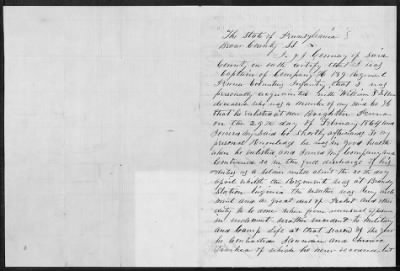 The State of Pennsylvania }
County SS
of said
County on oath certify that I was
Captain of Company H 139 Regiment
Penna Volunteer Infantry that I was
personally acquainted with William
who was a member of my said Co H
that he enlisted at New Brighton Penna
on the day of February 1864 and
joined my said Co shortly afterwards To my
personal Knowledge he was in good health
when he enlisted and joined my Company and
Continued so in the full discharge of his
duties as a soldier until about the 10th day
April whilst the Regiment was at Brandy
Station Virginia the weather was very
and a great deal of Picket and other
duty to be done when from unusual exposure
to inclement weather incident to Military
and Camp life at that season of the year
he Contracted and Chronic
Diarrhea of which he never recovered but